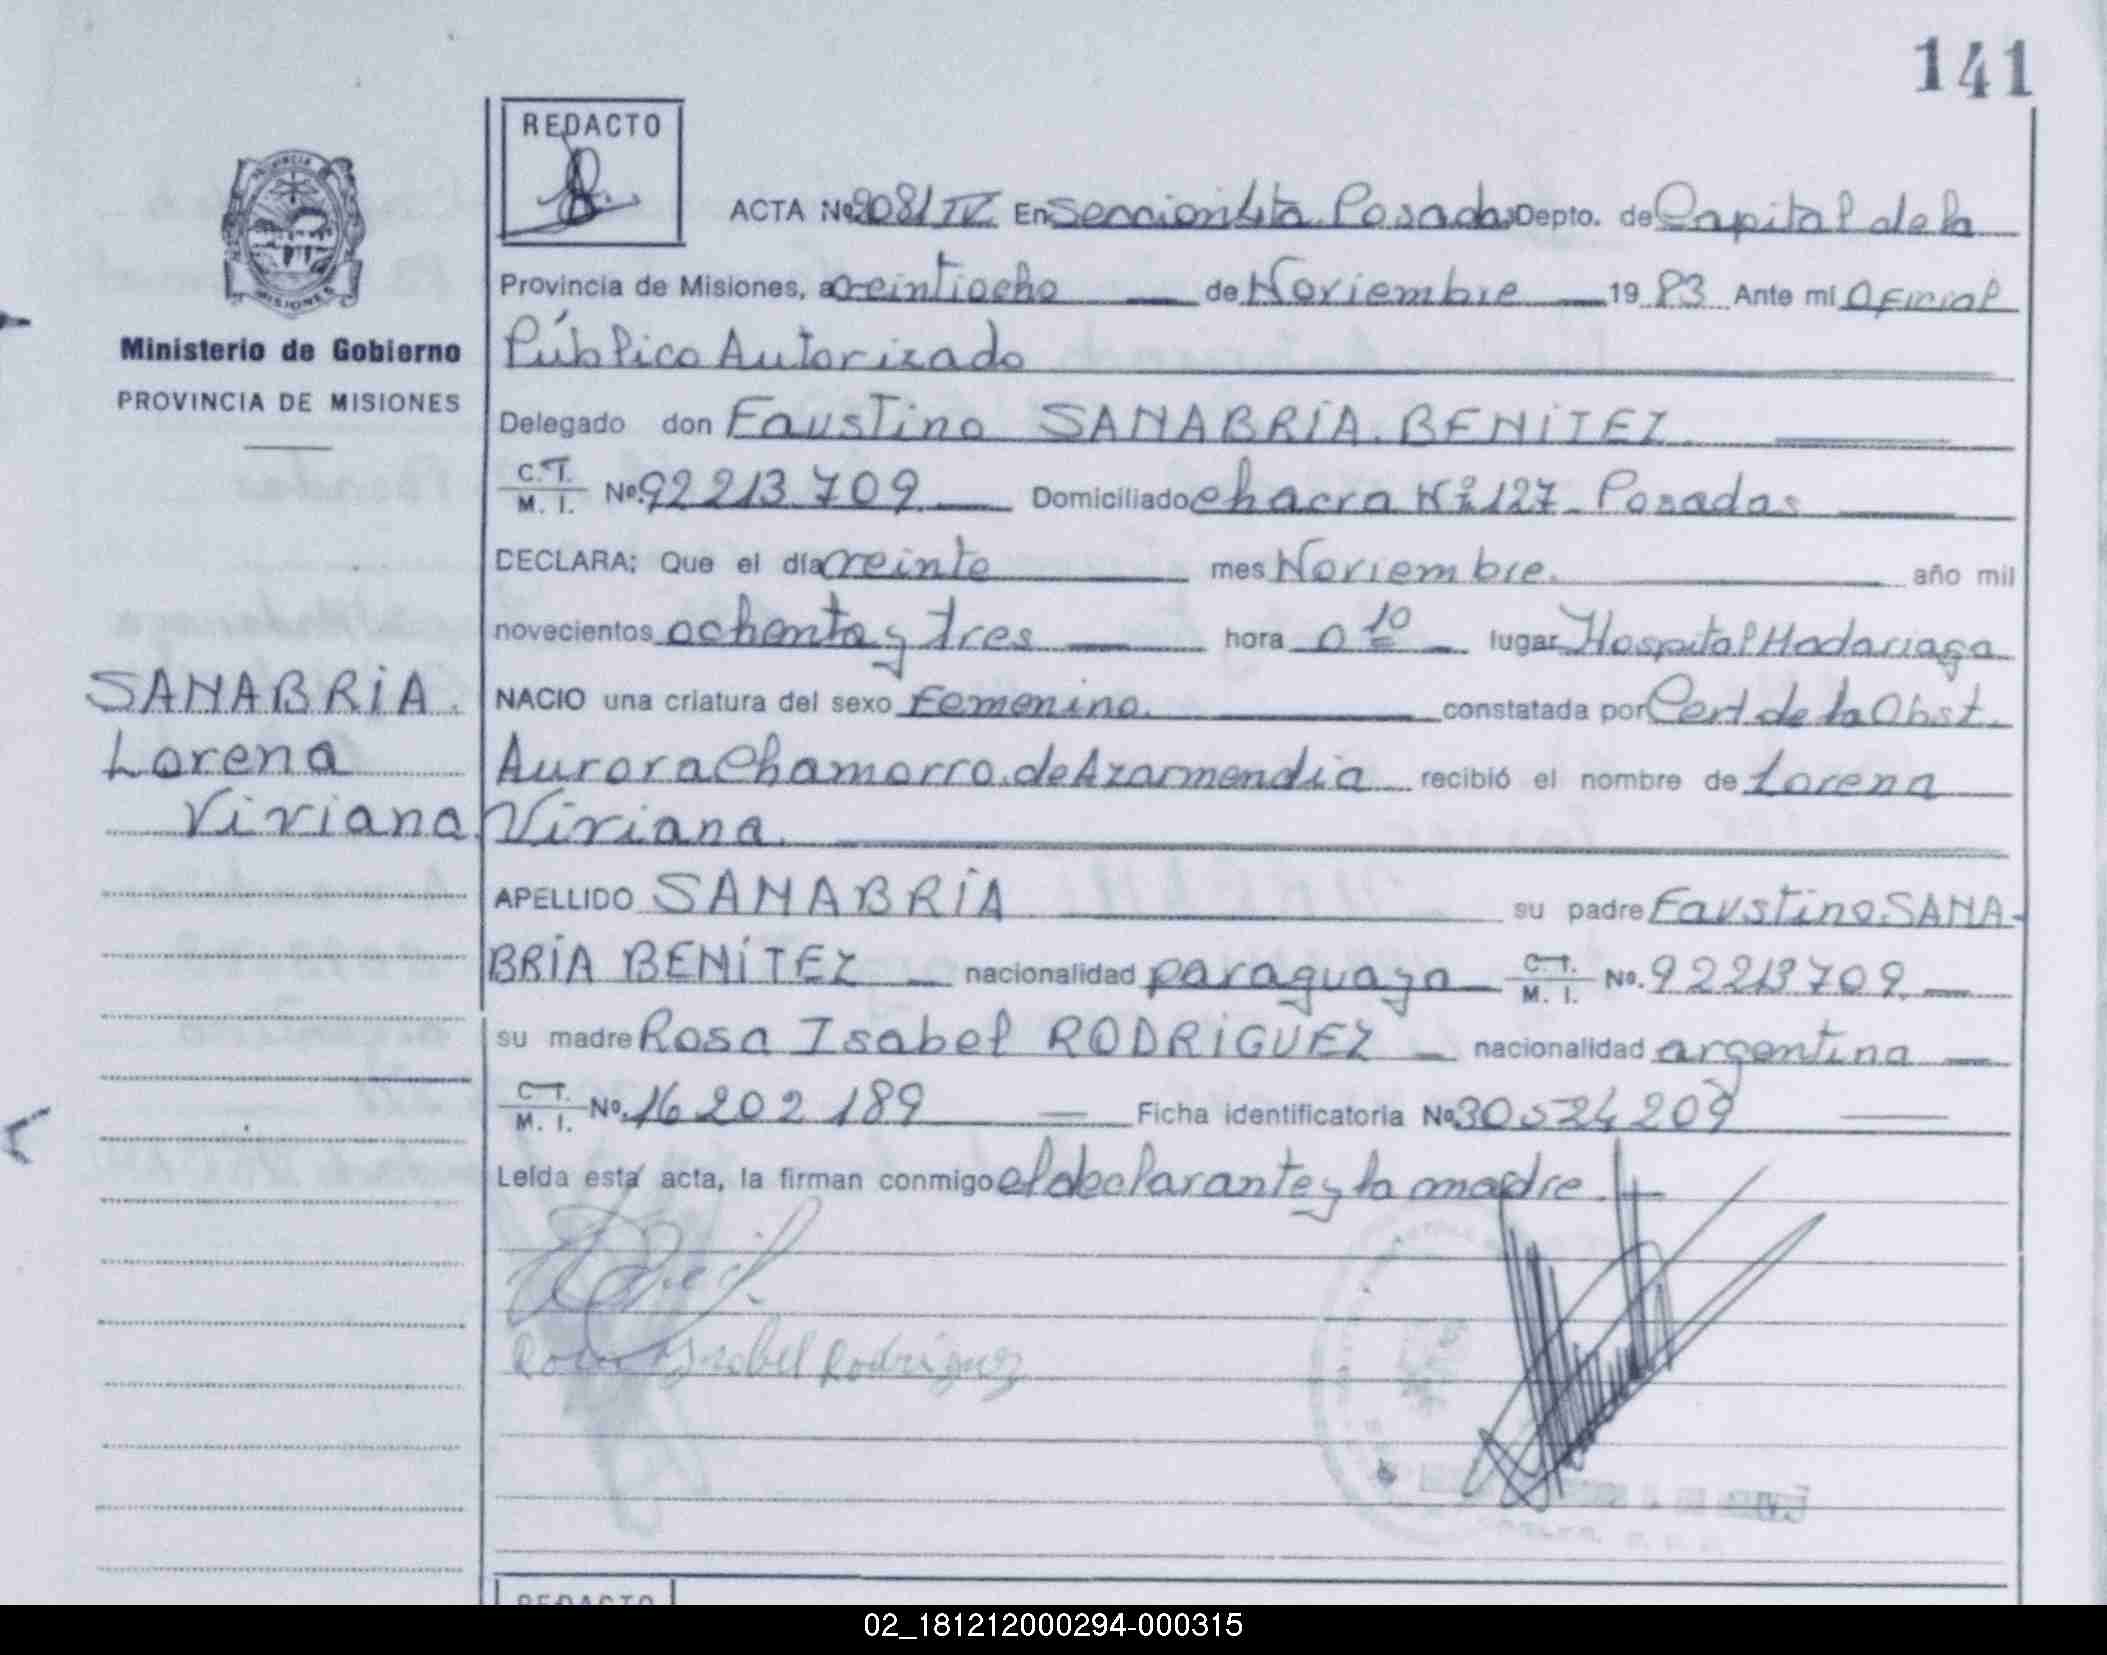 141
REDACTO
ACTA Nº 2081/IV En Sección 4ta Posadas Depto. de Capital de la
Provincia de Misiones, a veintiocho de Noviembre 1983 Ante mi Oficial
Público Autorizado
Ministerio de Gobierno
PROVINCIA DE MISIONES
Delegado don Faustino SANABRIA BENITEZ
C.T. M. I. Nº 92213709 Domiciliado Chacra Nº 127 Posadas
DECLARA: Que el día veinte mes Noviembre. año mil
novecientos ochenta y tres hora 0 10 lugar Hospital Madariaga
SANABRIA.
Lorena
Viviana
NACIO una criatura del sexo Femenino. constatada por Cert de la Obst.
Aurora Chamorro de Azarmendia recibió el nombre de Lorena
Viviana.
APELLIDO SANABRIA su padre Faustino SANA-
BRIA BENITEZ nacionalidad paraguaya C.T. M. I. Nº. 92213709
su madre Rosa Isabel RODRIGUEZ nacionalidad argentina
C.T. M. I. Nº. 16202189 Ficha identificatoria Nº 30524209
Leída esta acta, la firman conmigo el declarante y la madre.
Rosa Isabel Rodriguez
REDACTO
02_181212000294-000315